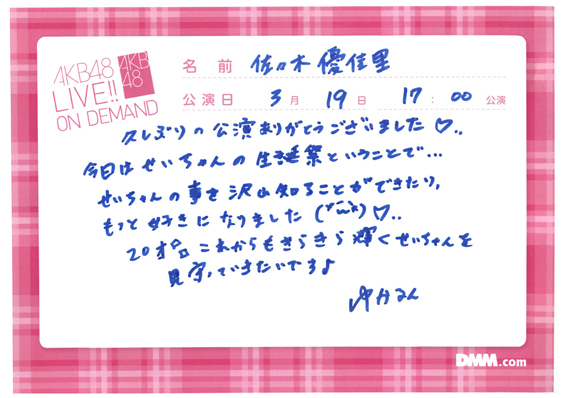 AKB48
LIVE!!
ON DEMAND
AKB
48
名前 佐々木優佳里
公演日 3月19日 17:00公演
久しぶりの公演ありがとうございました♡..
今日はせいちゃんの生誕祭ということで...
せいちゃんの事を沢山知ることができたり、
もっと好きになりました(*¨*)♡..
20才◎これからもきらきら輝くせいちゃんを
見守っていきたいです♪
ゆかるん
DMM.com